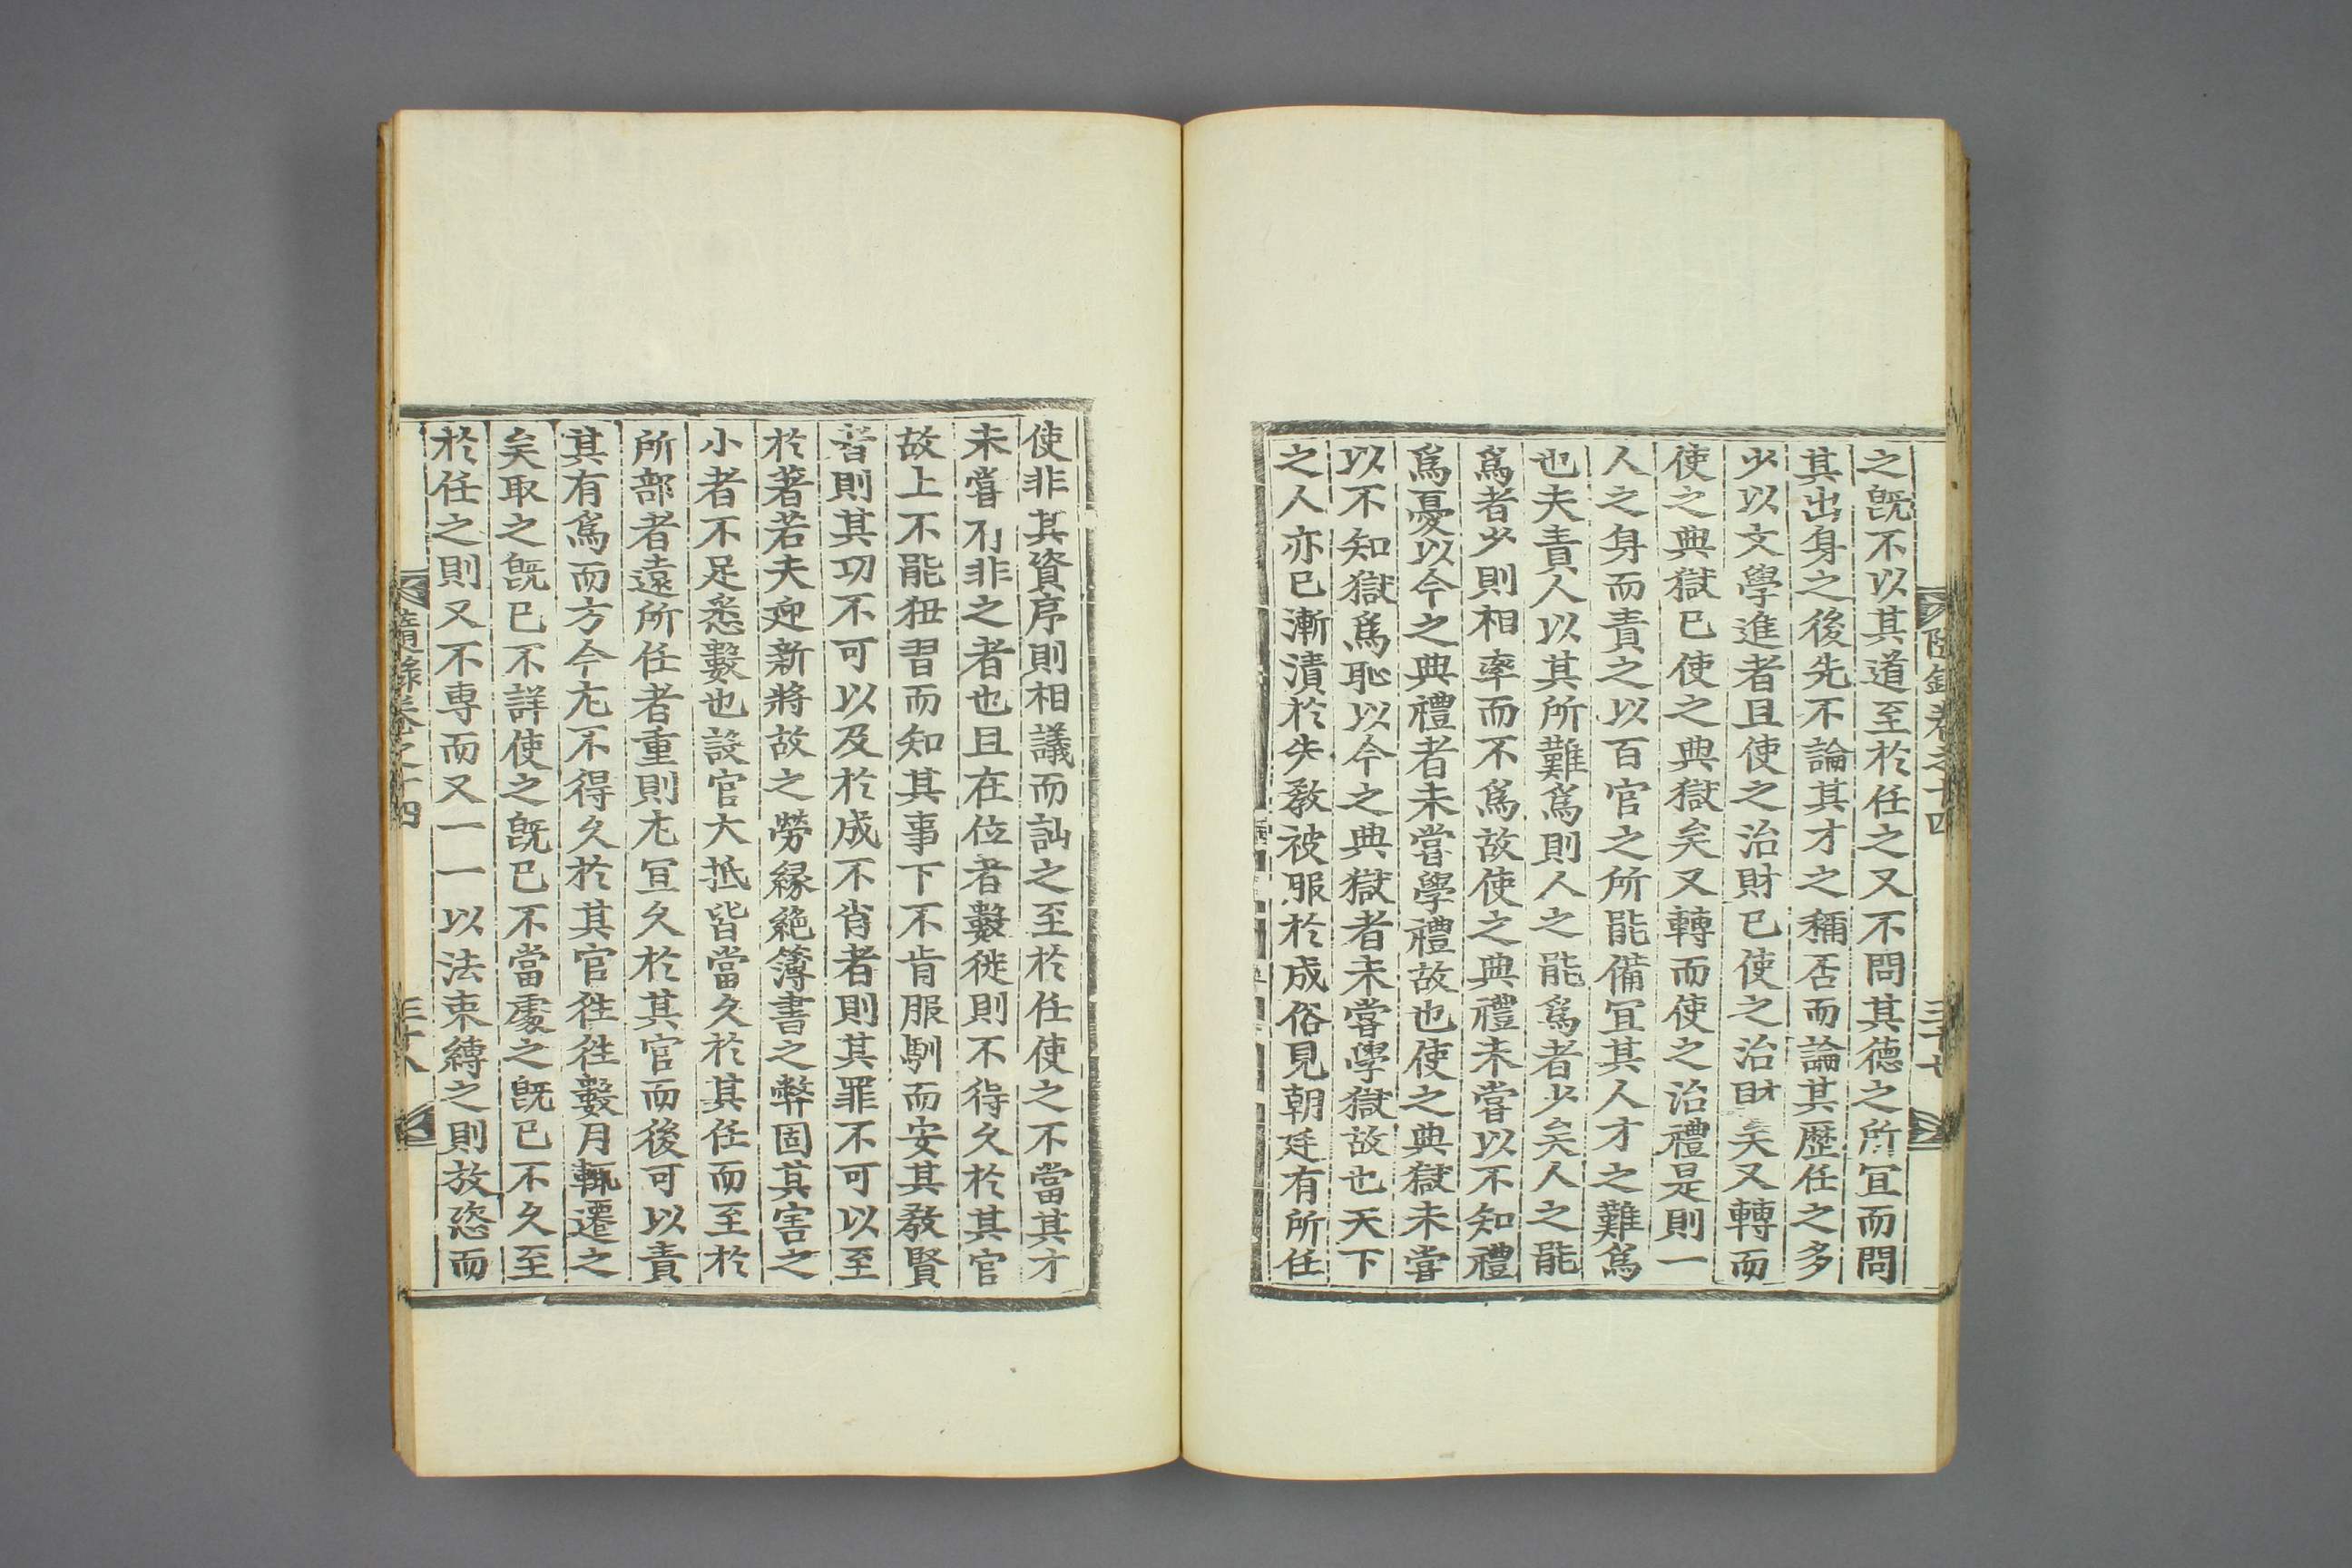 之旣不以其道至於任之又不問其德之所宜而問
其出身之後先不論其才之稱否而論其歷任之多
少以文學進者且使之治財已使之治財矣又轉而
使之典獄已使之典獄矣又轉而使之治禮是則一
人之身而責之以百官之所能備宜其人才之難爲
也夫責人以其所難爲則人之能爲者少矣人之能
爲者少則相率而不爲故使之典禮未嘗以不知禮
爲憂以今之典禮者未嘗學禮故也使之典獄未嘗
以不知獄爲恥以今之典獄者未嘗學獄故也天下
之人亦已漸漬於失敎被服於成俗見朝廷有所任
使非其資序則相議而訕之至於任使之不當其才
未嘗有非之者也且在位者數徙則不得久於其官
故上不能狃習而知其事下不肯服馴而安其敎賢
者則其功不可以及於成不肖者則其罪不可以至
於著若夫迎新將故之勞緣絶簿書之弊固其害之
小者不足悉數也設官大抵皆當久於其任而至於
所部者遠所任者重則尤宜久於其官而後可以責
其有爲而方今尤不得久於其官徃徃數月輒遷之
矣取之旣已不詳使之旣已不當處之旣已不久至
於任之則又不專而又一一以法束縛之則放恣而
隨錄卷之十四
三十八